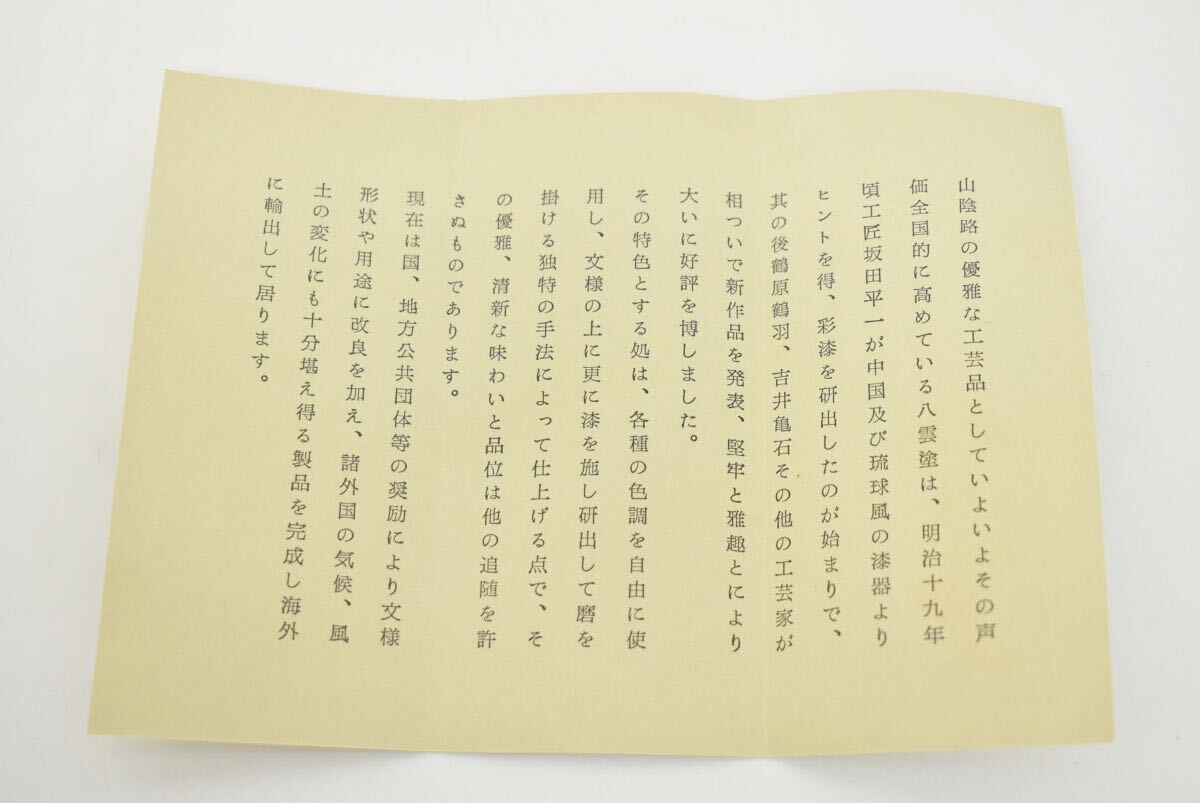 山陰路の優雅な工芸品としていよいよその声
価全国的に高めている八雲塗は、明治十九年
頃工匠坂田平一が中国及び琉球風の漆器より
ヒントを得、彩漆を研出したのが始まりで、
其の後鶴原鶴羽、吉井亀石その他の工芸家が
相ついで新作品を発表、堅牢と雅趣とにより
大いに好評を博しました。
その特色とする処は、各種の色調を自由に使
用し、文様の上に更に漆を施し研出して磨を
掛ける独特の手法によって仕上げる点で、そ
の優雅、清新な味わいと品位は他の追随を許
さぬものであります。
現在は国、地方公共団体等の奨励により文様
形状や用途に改良を加え、諸外国の気候、風
土の変化にも十分堪え得る製品を完成し海外
に輸出して居ります。